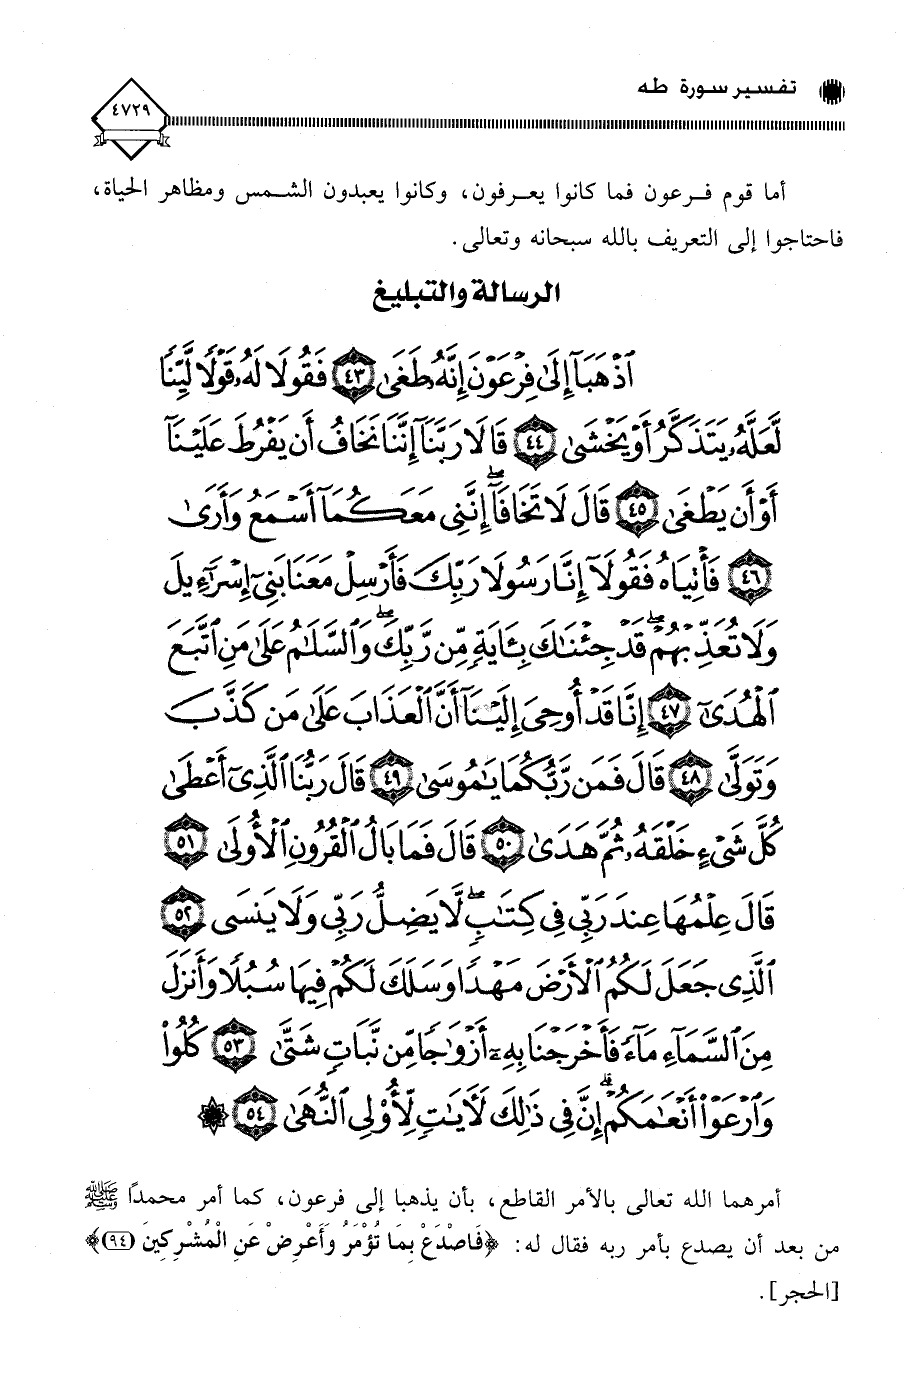 تفسير سورة طه
٤٧٢٩
أما قوم فرعون فما كانوا يعرفون، وكانوا يعبدون الشمس ومظاهر الحياة،
فاحتاجوا إلى التعريف بالله سبحانه وتعالى.
الرسالة والتبليغ
ٱذْهَبَآ إِلَىٰ فِرْعَوْنَ إِنَّهُۥ طَغَىٰ ٤٣ فَقُولَا لَهُۥ قَوْلًا لَّيِّنًا
لَّعَلَّهُۥ يَتَذَكَّرُ أَوْ يَخْشَىٰ ٤٤ قَالَا رَبَّنَآ إِنَّنَا نَخَافُ أَن يَفْرُطَ عَلَيْنَآ
أَوْ أَن يَطْغَىٰ ٤٥ قَالَ لَا تَخَافَآ ۖ إِنَّنِى مَعَكُمَآ أَسْمَعُ وَأَرَىٰ
٤٦ فَأْتِيَاهُ فَقُولَآ إِنَّا رَسُولَا رَبِّكَ فَأَرْسِلْ مَعَنَا بَنِىٓ إِسْرَٰٓءِيلَ
وَلَا تُعَذِّبْهُمْ ۖ قَدْ جِئْنَٰكَ بِـَٔايَةٍ مِّن رَّبِّكَ ۖ وَٱلسَّلَٰمُ عَلَىٰ مَنِ ٱتَّبَعَ
ٱلْهُدَىٰٓ ٤٧ إِنَّا قَدْ أُوحِىَ إِلَيْنَآ أَنَّ ٱلْعَذَابَ عَلَىٰ مَن كَذَّبَ
وَتَوَلَّىٰ ٤٨ قَالَ فَمَن رَّبُّكُمَا يَٰمُوسَىٰ ٤٩ قَالَ رَبُّنَا ٱلَّذِىٓ أَعْطَىٰ
كُلَّ شَىْءٍ خَلْقَهُۥ ثُمَّ هَدَىٰ ٥٠ قَالَ فَمَا بَالُ ٱلْقُرُونِ ٱلْأُولَىٰ ٥١
قَالَ عِلْمُهَا عِندَ رَبِّى فِى كِتَٰبٍ ۖ لَّا يَضِلُّ رَبِّى وَلَا يَنسَى ٥٢
ٱلَّذِى جَعَلَ لَكُمُ ٱلْأَرْضَ مَهْدًا وَسَلَكَ لَكُمْ فِيهَا سُبُلًا وَأَنزَلَ
مِنَ ٱلسَّمَآءِ مَآءً فَأَخْرَجْنَا بِهِۦٓ أَزْوَٰجًا مِّن نَّبَاتٍ شَتَّىٰ ٥٣ كُلُوا۟
وَٱرْعَوْا۟ أَنْعَٰمَكُمْ ۗ إِنَّ فِى ذَٰلِكَ لَءَايَٰتٍ لِّأُو۟لِى ٱلنُّهَىٰ ٥٤
أمرهما الله تعالى بالأمر القاطع، بأن يذهبا إلى فرعون، كما أمر محمدًا ﷺ
من بعد أن يصدع بأمر ربه فقال له: ﴿فَاصْدَعْ بِمَا تُؤْمَرُ وَأَعْرِضْ عَنِ الْمُشْرِكِينَ (٩٤)﴾
[الحجر].